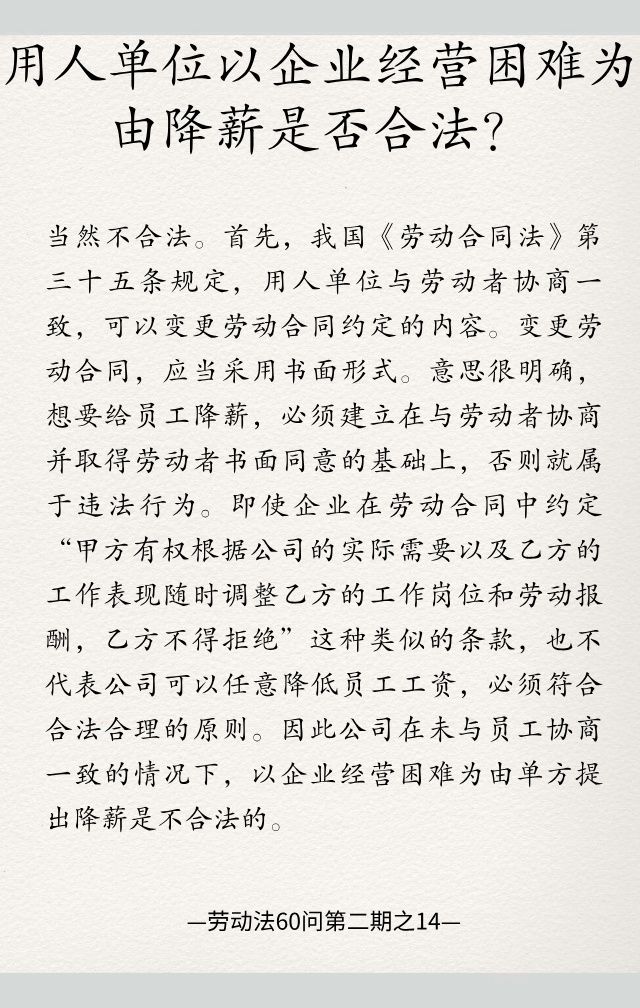 用人单位以企业经营困难为
由降薪是否合法？
当然不合法。首先，我国《劳动合同法》第
三十五条规定，用人单位与劳动者协商一
致，可以变更劳动合同约定的内容。变更劳
动合同，应当采用书面形式。意思很明确，
想要给员工降薪，必须建立在与劳动者协商
并取得劳动者书面同意的基础上，否则就属
于违法行为。即使企业在劳动合同中约定
“甲方有权根据公司的实际需要以及乙方的
工作表现随时调整乙方的工作岗位和劳动报
酬，乙方不得拒绝”这种类似的条款，也不
代表公司可以任意降低员工工资，必须符合
合法合理的原则。因此公司在未与员工协商
一致的情况下，以企业经营困难为由单方提
出降薪是不合法的。
—劳动法60问第二期之14—